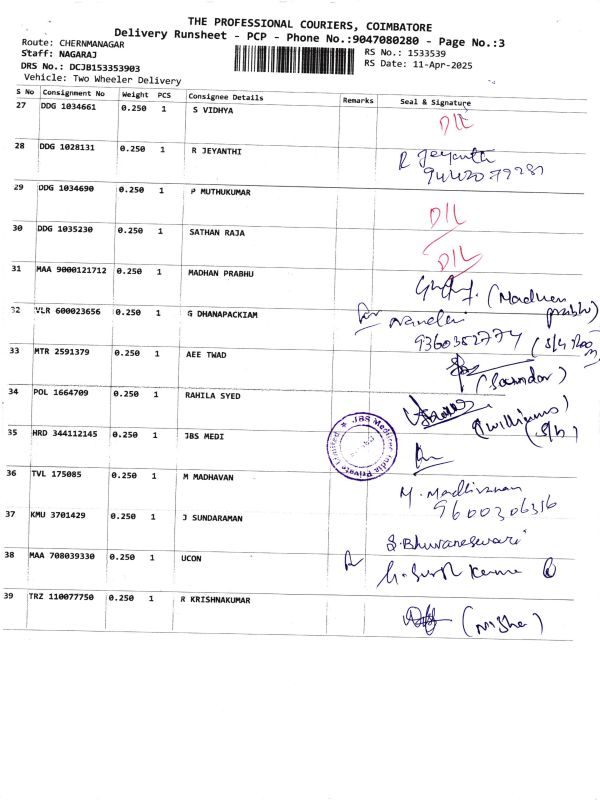 THE PROFESSIONAL COURIERS, COIMBATORE
Delivery Runsheet - PCP - Phone No.:9047080280 - Page No.:3
Route: CHERNMANAGAR
RS No.: 1533539
Staff: NAGARAJ
RS Date: 11-Apr-2025
DRS No.: DCJB153353903
Vehicle: Two Wheeler Delivery
S No Consignment No Weight PCS Consignee Details Remarks Seal & Signature
27 DDG 1034661 0.250 1 S VIDHYA D/L
28 DDG 1028131 0.250 1 R JEYANTHI R Jeyanthi
29 DDG 1034690 0.250 1 P MUTHUKUMAR D/L
30 DDG 1035230 0.250 1 SATHAN RAJA D/L
31 MAA 9000121712 0.250 1 MADHAN PRABHU (Madhan prabhu)
32 VLR 600023656 0.250 1 G DHANAPACKIAM for
9360352774
33 MTR 2591379 0.250 1 AEE TWAD (Soundar)
34 POL 1664709 0.250 1 RAHILA SYED (Williams)
35 HRD 344112145 0.250 1 JBS MEDI JBS Medi India Private Limited
36 TVL 175085 1 M MADHAVAN M.
9600306316
37 KMU 3701429 0.250 1 J SUNDARAMAN S.Bhuvaneswari
38 MAA 708039330 0.250 1 UCON
39 TRZ 110077750 0.250 1 R KRISHNAKUMAR (Nisha)